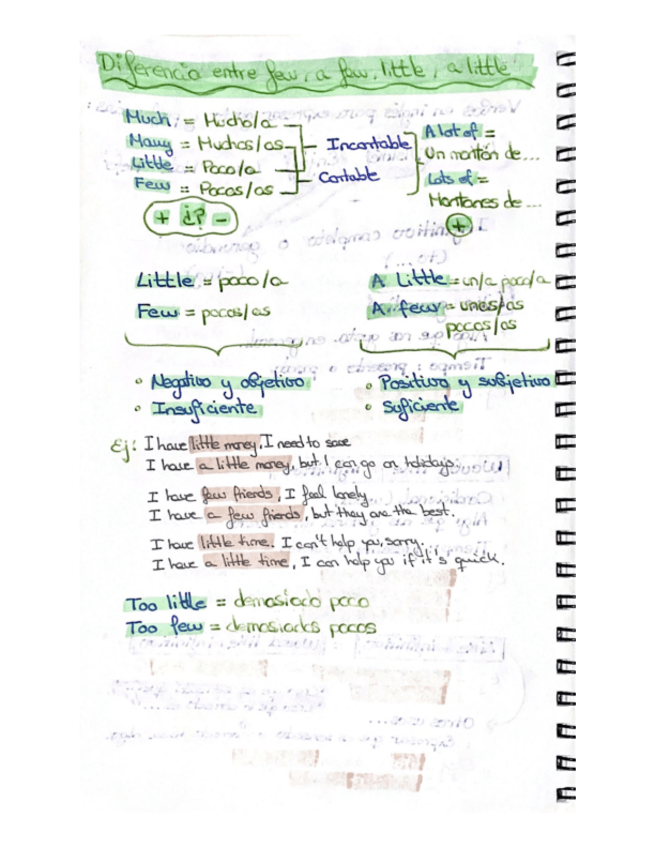 Diferencia entre few, a few, little, a little
Much = Mucho/a
Many = Muchos/as
Little = Poco/a
Few = Pocos/as
+ ¿? -
Incontable
Contable
A lot of =
Un montón de...
Lots of =
Montones de ...
+
Little = poco/a
Few = pocos/as
A little = un/a poco/a
A few = unos/as
pocos/as
• Negativo y objetivo
• Insuficiente
• Positivo y subjetivo
• Suficiente
Ej: I have little money. I need to save
I have a little money, but I can go on holidays.
I have few friends, I feel lonely.
I have a few friends, but they are the best.
I have little time. I can't help you, sorry.
I have a little time, I can help you if it's quick.
Too little = demasiado poco
Too few = demasiados pocos